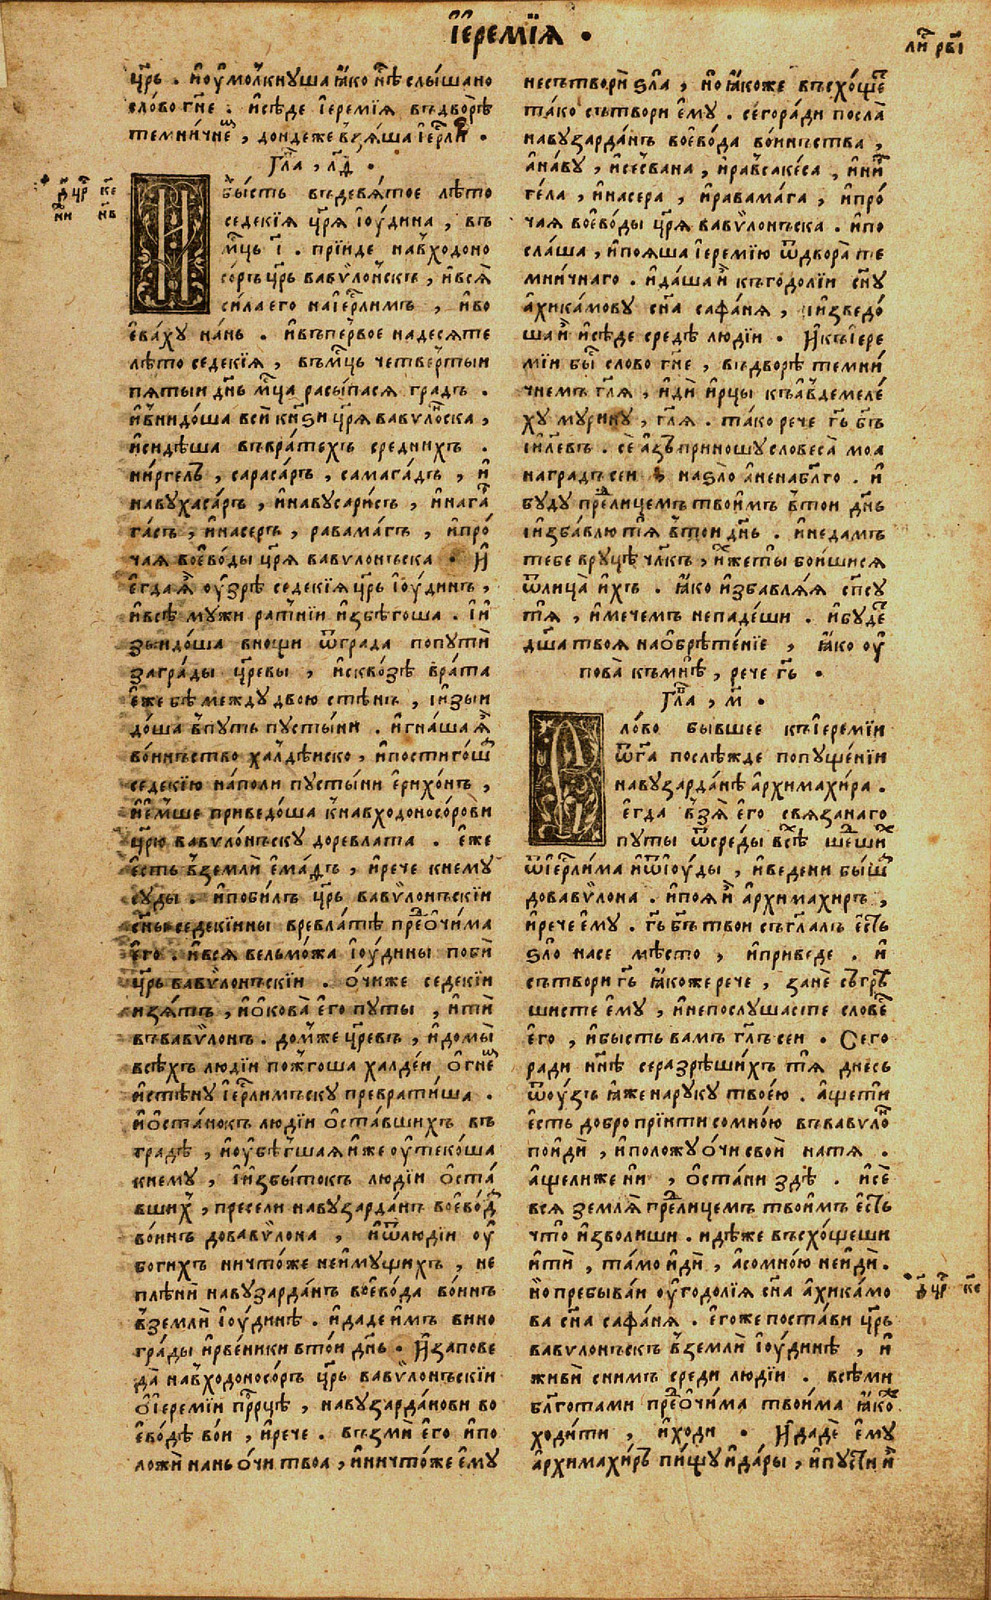 І҆еремїѧ .
ли́ст рв҃і
цр҃ь . и҆оу҆молкнуша ꙗ҆ко нн҃ѣ слы́шано
сло́во гн҃е . и҆сѣде і҆еремїѧ въдворѣ̀
темничнем , до́ндеже взѧ́ша і҆ер҃ли́м .
Гла , л҃д .
д҃ цр҃ к҃е
бы́сть въдевѧ́тое лѣ́то
седекїѧ цр҃ѧ і҆оу́дина , въ
мц҃ь і҃ . прїи́де навходоно
со́ръ цр҃ь вавѵло́нскъ , и҆всѧ̀
си́ла его нао҆ер҃лимъ , и҆во
ева́ху на́нь . и҆въпе́рвое надесѧте
лѣ́то седекїѧ , въмц҃ь четве́ртыи
пѧ́тыи дн҃ь мц҃а расы́пасѧ гра́дъ .
и҆вни́до́ша всѝ кн҃ѕи цр҃ѧ вавѵло́нска ,
и҆сидѣ́ша въвра́тѣхъ сре́днихъ .
ни́ргель , сараса́ръ , самага́дъ , и҆
навухаса́ръ , и҆навусари́съ , и҆нага́р
га́съ , и҆насеръ , равама́гъ , и҆про́
чаѧ воево́ды цр҃ѧ вавѵлонъска . И҆
е҆гда̀ ѧ҆̀ оу҆зрѣ̀ седекїѧ цр҃ь і҆оу́динъ ,
и҆всѣ̀ му́жи ра́тнїи и҆збѣго́ша . і҆и҆
зыидо́ша вно́щи ѿгра́да попути̏
загра́ды цр҃евы , и҆скво́зѣ врата̀
е҆́же бѣ̀ между двою̀ стѣ́нъ , і҆изыи
до́ша впу́ть пусты́ни . и҆гна́ша ѧ҆̀
во́инъство халдѣ́иско , и҆постиго́ша
седекїю на́поли пусты́ни е҆рихо́нъ ,
и҆е҆́мше приведо́ша кнавходоносо́рови
цр҃ю вавѵло́нъску дореѵла́та . е҆́же
е҆́сть вземлѝ е҆ма́дъ , и҆рече̏ кнему
суды̀ . и҆поби́лъ цр҃ь вавѵло́нъскїи
сн҃ы седекїины вревла́тѣ пред о҆чи́ма
е҆го̀ . и҆всѧ̀ вельмо́жа і҆оу́дины поби̏
цр҃ь вавѵло́нъскїи . о҆́чиже седекїи
изѧ́тъ , и҆о҆кова̀ е҆го̀ пу́ты , и҆тѝ
въвавѵло́нъ . до́мже цр҃евъ , и҆до́мы
всѣ́хъ людїи пожго́ша халде́и о҆гне́м
и҆стѣ́ну і҆ер҃ли́мъску преврати́ша .
и҆о҆ста́нокъ людїи о҆ста́вшихъ въ
гра́дѣ , и҆оу҆бѣ́гшаѧ и҆же оу҆теко́ша
кнему , і҆избы́токъ людїи о҆ста́
вших , пресели̏ навузарда́нъ воево́да
во́инъ довавѵло́на , и҆ѿлюдїи оу҆
бо́гихъ ничто́же неи҆му́щихъ , не
плѣнѝ навузарда́нъ воево́да во́инъ
вземлѝ і҆оу́динѣ . и҆даде и҆мъ вино
гра́ды и҆рве́ники вто́и дн҃ь . И҆запове
да̀ навходоносо́ръ цр҃ь вавѵло́нъскїи
о҆і҆ереми́и прр҃цѣ , навузарда́нови во
е҆во́дѣ во́и , и҆рече . възмѝ е҆го̀ и҆по
ложѝ нань о҆́чи твоа , и҆ничто́же е҆му
несътворѝ ѕла̀ , но ꙗ҆коже въсхо́щет
та́ко сътвори е҆му . сего́ра́ди посла̀
навузарда́нъ воево́да во́инъства ,
а҆на́ву , и҆сесвана , и҆рапсаке́са , и҆нир
ге́ла , и҆насера , и҆равама́га , и҆про́
чаѧ воево́ды цр҃ѧ вавѵло́нъска . и҆по
сла́ша , и҆поѧша і҆еремїю ѿдвора̀ те
мни́чнаго . и҆да́ша и҆ къгодолїи сн҃у
а҆хика́мову сн҃а сафа́нѧ , і҆изведо́
ша и҆ и҆сѣде средѣ̀ людїи . И҆къі҆ере
мїи бы́ слово гн҃е , въдворѣ темни́
чнемъ гл҃ѧ , и҆дѝ и҆рцы къа҆вдемеле́
ху мури́ну , гл҃ѧ . та́ко рече гь҃ бг҃ъ
і҆и҃левъ . сѐ а҆зъ приношу словеса̀ моа
награ́дъ сеи , наѕло̀ а҆ненабл҃го . и҆
бу́ду пред лице́мъ твои́мъ вто́и дн҃ь
і҆изба́влю тѧ̀ вто́и дн҃ь . и҆неда́мъ
тебе вру́цѣ чл҃къ , и҆́хже ты̀ бои́шисѧ
ѿлица̀ и҆́хъ . ꙗ҆ко и҆збавлѧ́ѧ сп҃су
тѧ̀ , и҆мече́мъ непаде́ши . и҆бу́дет
дш҃а твоѧ̀ нао҆брѣте́нїе , ꙗ҆ко оу҆
пова̀ къмнѣ̀ , рече гь҃ .
Гла , м҃ .
ло́во бы́вшее къі҆еремїи
ѿг҃а послѣ́жде попуще́нїи
навузарда́нѣ а҆рхимахи́ра .
е҆гда̀ взѧ̀ е҆го̀ свѧ́занаго
пу́ты ѿсреды̀ всѣ́х ше́дших
ѿі҆ер҃ли́ма и҆ѿі҆оу́ды , и҆ведени бы́ша
довавѵло́на . и҆поѧ̀ и҆ а҆рхимахи́ръ ,
и҆рече е҆му . гь҃ бг҃ъ тво́и съгл҃алъ е҆́сть
ѕло̀ насе мѣ́сто , и҆приведе . и҆
сътвори гь҃ ꙗ҆коже рече , зане̏ съгрѣ
шисте е҆му , и҆непослушасте слове́с
е҆го̀ , и҆бы́сть вамъ гл҃ъ се́и . Сего
ра́ди нн҃ѣ се разрѣши́хъ тѧ̀ дне́сь
ѿоу҆́зъ ꙗ҆же на руку твоею . а҆ще ти
е҆́сть добро прїи́ти со мно́ю въвавѵло́н
пои́ди , и҆положу о҆́чи своѝ на тѧ̀ .
а҆щелиже нѝ , о҆ста́ни здѣ̀ . и҆сѐ
всѧ̀ землѧ̀ пред лице́мъ твои́мъ е҆́сть
что̀ и҆зво́лиши . и҆дѣ́же въсхо́щеши
и҆тѝ , та́мо и҆дѝ , а҆сомно́ю неи҆дѝ .
д҃ цр҃ к҃е
но пребыва́и оу҆годолїѧ сн҃а а҆хика́мо
ва сн҃а сафа́нѧ . е҆го́же поста́ви цр҃ь
вавѵло́нъскъ вземлѝ і҆оу́динѣ , и҆
живѝ снимъ среди людїи . всѣ́ми
бл҃готами пред о҆чи́ма твои́ма ꙗ҆кож
ходи́ти , и҆ходи . И҆даде̏ е҆му
а҆рхимахи́ръ пи́щу и҆да́ры , и҆пустѝ и҆